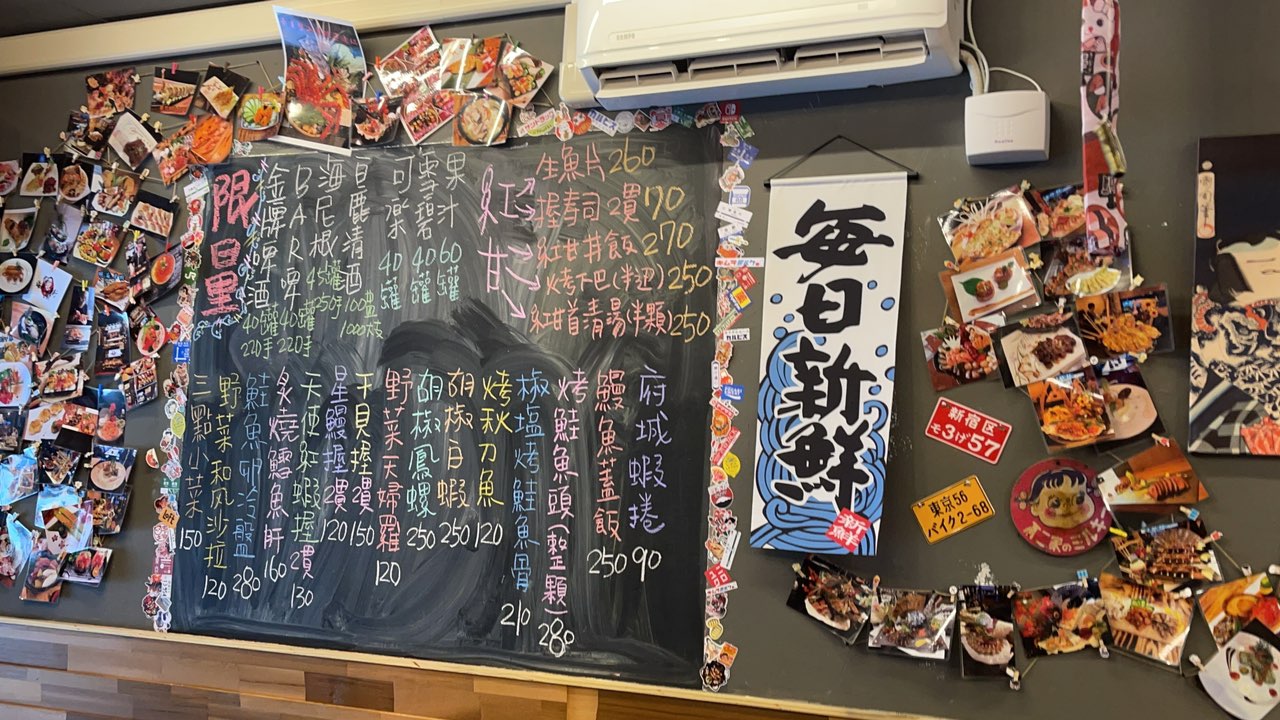 限量
金牌啤酒 40罐 220手
BAR啤 40罐 220手
海尼根 45罐 250手
白鹿清酒 100盅 1000瓶
可樂 40罐
雪碧 40罐
果汁 60罐
紅甘
生魚片 260
握壽司 2貫 170
紅甘丼飯 270
烤下巴(半边) 250
紅甘首清湯(半顆) 250
三點小菜 150
野菜和风沙拉 120
鮭魚卵冷盤 280
炙燒鱈魚肝 160
天使紅蝦握2貫 130
星鰻握2貫 120
干貝握2貫 150
野菜天婦羅 120
胡椒鳳螺 250
胡椒白蝦 250
烤秋刀魚 120
椒塩烤鮭魚骨 210
烤鮭魚頭(整顆) 280
鰻魚蓋飯 250
府城蝦捲 90
毎日新鮮
新鮮
SAMPO
新宿区
モ3げ57
東京56
バイク2-68
カルピス